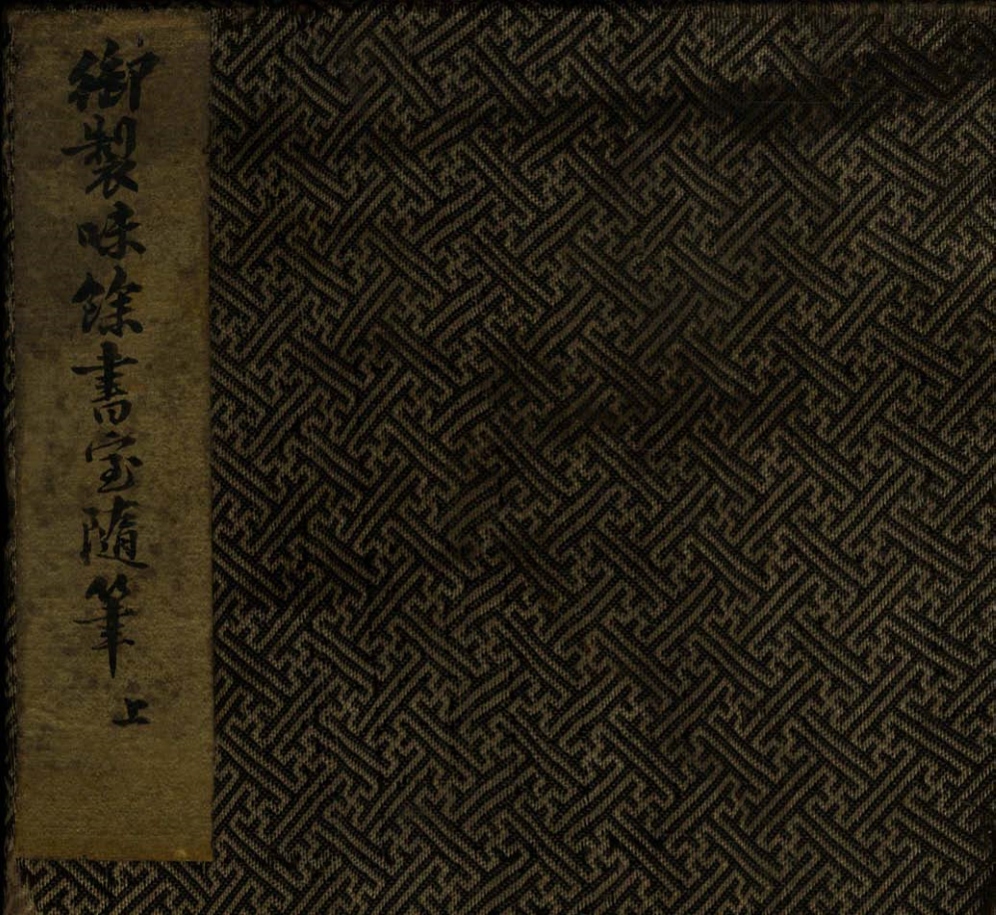 御製味餘書室隨筆 上